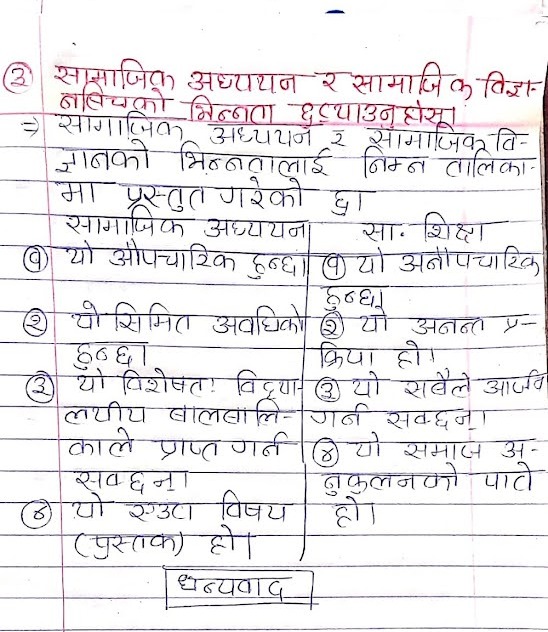 ③ सामाजिक अध्ययन र सामाजिक विज्ञा-
नबिचको भिन्नता छुट्याउनुहोस्।
⇒ सामाजिक अध्ययन र सामाजिक वि-
ज्ञानको भिन्नतालाई निम्न तालिका-
मा प्रस्तुत गरेको छ।
सामाजिक अध्ययन
सा. शिक्षा
① यो औपचारिक हुन्छ।
① यो अनौपचारिक
हुन्छ।
② यो सिमित अवधिको
हुन्छ।
② यो अनन्त प्र-
क्रिया हो।
③ यो विशेषतः विद्या-
लयीय बालबालि-
काले प्राप्त गर्न
सक्छन्।
③ यो सबैले आर्जन
गर्न सक्छन्।
④ यो समाज अ-
नुकुलनको पाटो
हो।
④ यो एउटा विषय
(पुस्तक) हो।
धन्यवाद